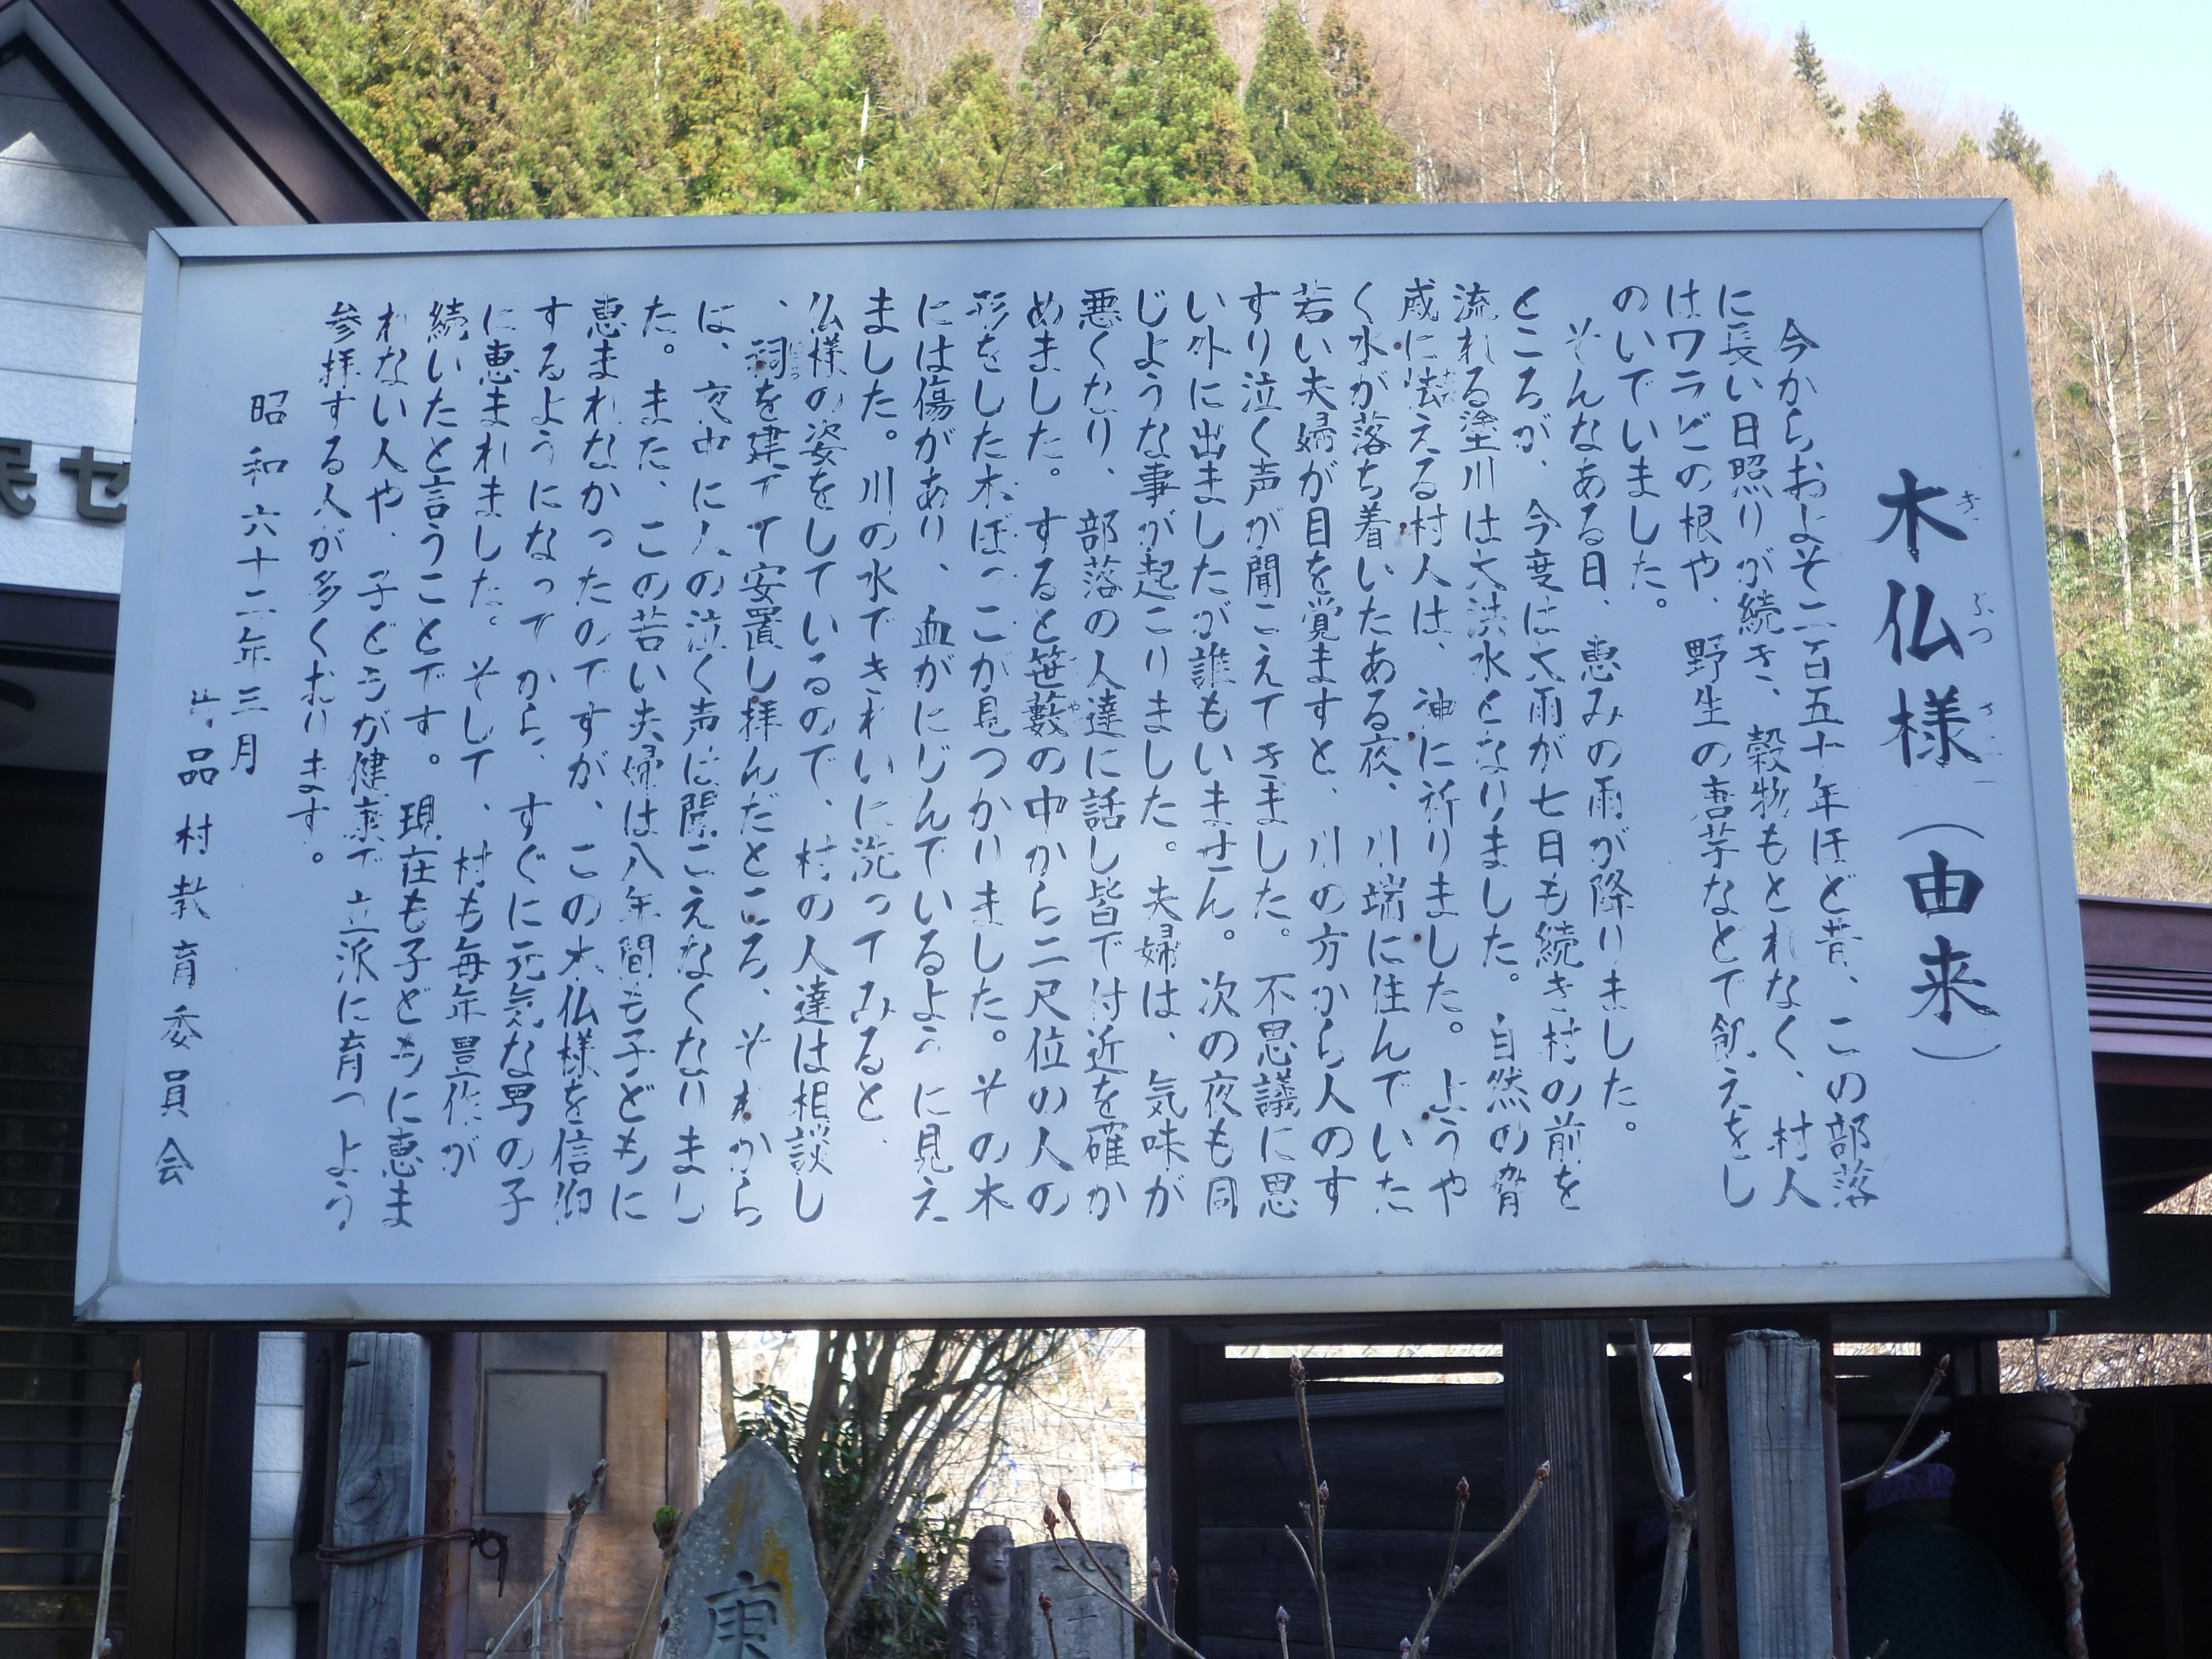 木仏様（由来）
きぶつさ
今からおよそ二百五十年ほど昔、この部落
に長い日照りが続き、穀物もとれなく、村人
はワラビの根や、野生の唐芋などで飢えをし
のいでいました。
そんなある日、恵みの雨が降りました。
ところが、今度は大雨が七日も続き村の前を
流れる塗川は大洪水となりました。自然の脅
威に怯える村人は、神に祈りました。ようや
く水が落ち着いたある夜、川端に住んでいた
若い夫婦が目を覚ますと、川の方から人のす
すり泣く声が聞こえてきました。不思議に思
い外に出ましたが誰もいません。次の夜も同
じような事が起こりました。夫婦は、気味が
悪くなり、部落の人達に話し皆で付近を確か
めました。すると笹藪の中から二尺位の人の
形をした木ぼっこが見つかりました。その木
には傷があり、血がにじんでいるように見え
ました。川の水できれいに洗ってみると、
仏様の姿をしているので、村の人達は相談し
、祠を建てて安置し拝んだところ、それから
は、夜中に人の泣く声は聞こえなくなりまし
た。また、この若い夫婦は八年間も子どもに
恵まれなかったのですが、この木仏様を信仰
するようになってから、すぐに元気な男の子
に恵まれました。そして、村も毎年豊作が
続いたと言うことです。現在も子どもに恵ま
れない人や、子どもが健康で立派に育つよう
参拝する人が多くおります。
昭和六十二年三月
片品村教育委員会
民セ
庚